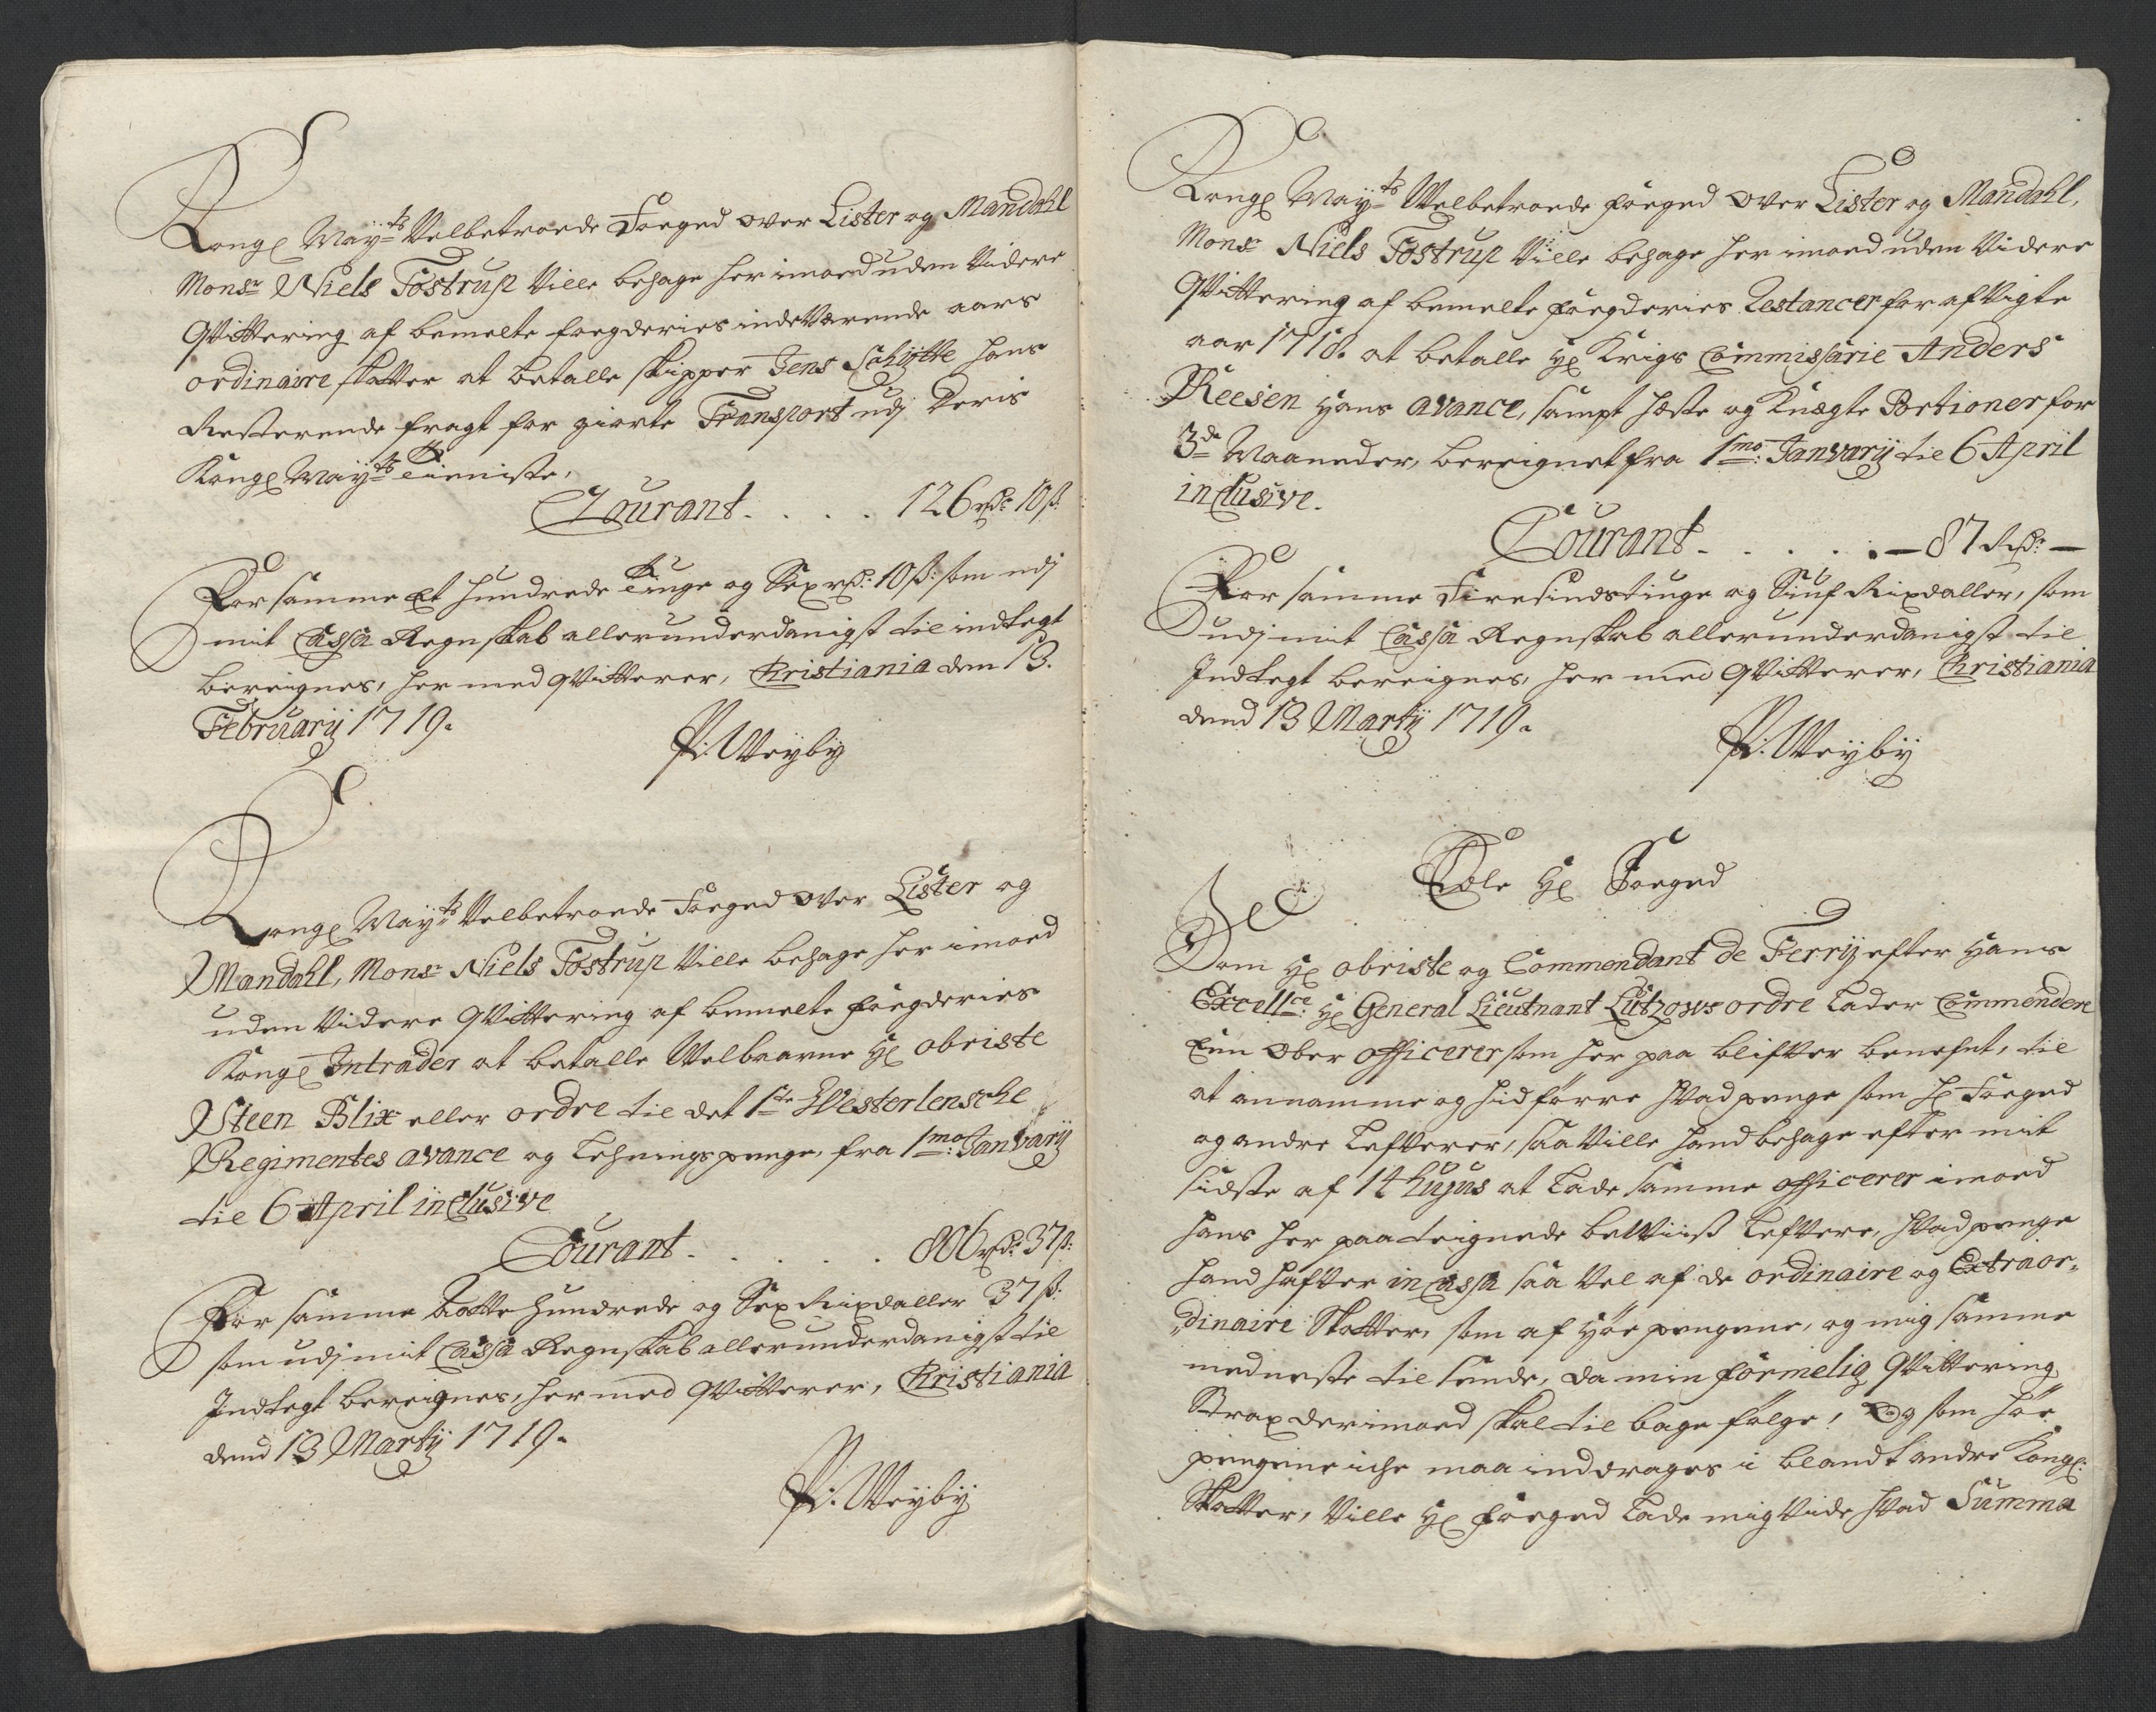 Kongl May:ts Velbetroede Foeged over Lister og Mandahl
Monsr Niels Tostrup Ville behage her imoed uden Videre
qvittering af bemelte foegderies indeværende aars
ordinaire skatter at betalle skipper Jens Schytte hans
Resterende fragt for giorte Transport udj Deris
Kongl May:ts Tieniste,
Courant. . . . 126 rdr: 10 ß:
For samme Et hundrede Tiuge og Sex rdr: 10 ß: som udj
mit Cassa Regnskab allerunderdanigst til indtegt
bereignes, her med qvitterer, Christiania den 13.
Februarij 1719.
P: Weyby
Kongl May:ts Velbetroede Foeged over Lister og
Mandahl, Monsr Niels Tostrup Ville behage her imoed
uden Videre qvittering af bemelte foegderies
Kongl Intrader at betalle Velbaarne Hl obriste
Steen Blix eller ordre til det 1ste Westerlensche
Regimentes avance og Lehningspenge, fra 1mo: Janvarij
til 6 April inclusive
Courant. . . . . 806 rdr: 37 ß:
For samme Aatte hundrede og Sex Rixdaller 37 ß:
som udj mit Cassa Regnskab allerunderdanigst til
Indtegt bereignes, her med qvitterer, Christiania
dend 13 Martij 1719.
P: Weyby
Kongl May:ts Velbetroede foeged over Lister og Mandahl,
Monsr Niels Tostrup Ville behage her imoed uden Videre
qvittering af bemelte foegderies Restancer for afvigte
aar 1718. at betalle Hl Krigs Commissarie Anders
Reesen Hans avance, sampt heste og Knegte Portioner for
3de Maaneder, bereignet fra 1mo: Janvarij til 6 April
inclusive.
Courant. . . . . . — 87 Rdr: —
For samme Firesindstiuge og Siuf Rixdaller, som
udj mit Cassa Regnskab allerunderdanigst til
Indtegt bereignes, her med qvitterer, Christiania
dend 13 Martij 1719.
P: Weyby
Ædle Hl Foeged
Som Hl obriste og Commendant de Ferrij efter Hans
Excellce: Hl General Lieutnant Lützows ordre Lader Commendere
Een Ober officerer som her paa blifver benefnt, til
at annamme og hidførre hvad penge som Hl Foeged
og andre Lefverer, saa Ville hand behage efter mit
sidste af 14 hujus at Lade samme officerer imoed
hans her paa teignede beviiß Lefvere, hvad penge
hand hafver in Cassa saa vel af de ordinaire og Extraor-
dinaire Skatter, som af Høe pengene, og mig samme
med neste til sende, da min formelig qvittering
Strax derimoed skal til bage følge! Og som høe
pengene iche maa inddrages i blandt andre Kongl:
Skatter, Ville Hl foeged Lade mig Vide hvad Summa